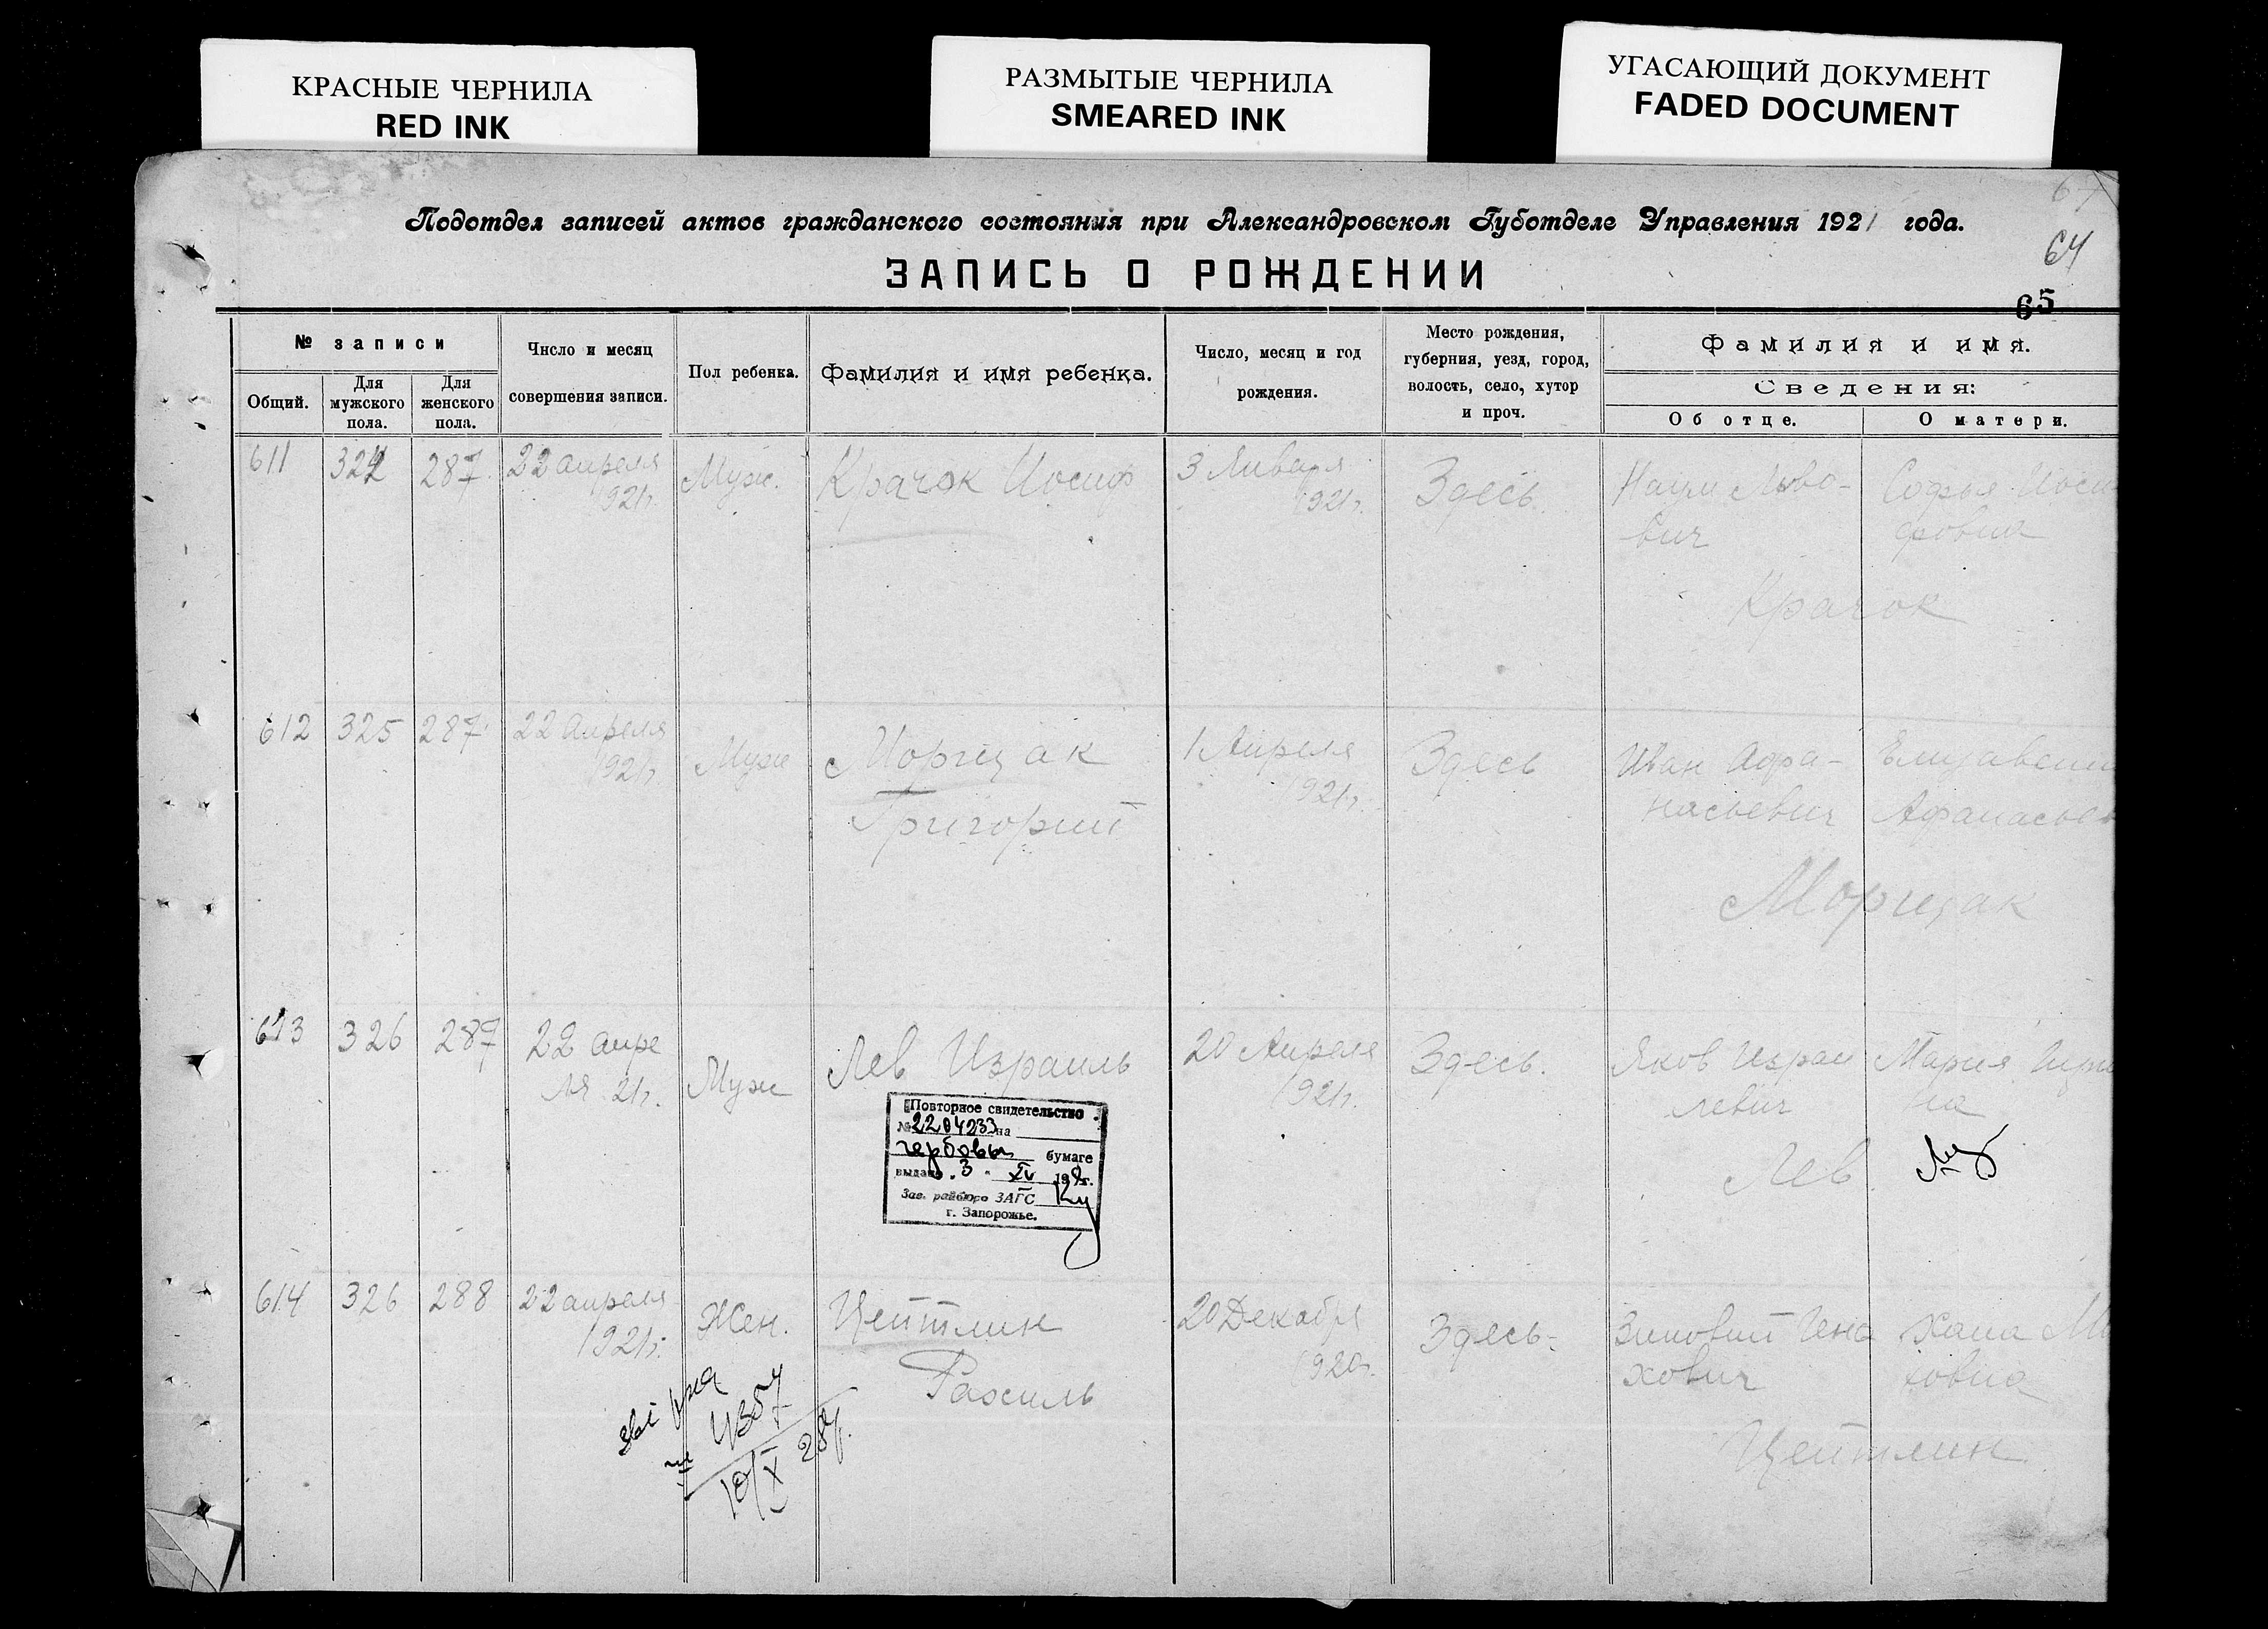 КРАСНЫЕ ЧЕРНИЛА
RED INK
РАЗМЫТЫЕ ЧЕРНИЛА
SMEARED INK
УГАСАЮЩИЙ ДОКУМЕНТ
FADED DOCUMENT
67
Подотдел записей актов гражданского состояния при Александровском Губотделе Управления 1921 года.
64
ЗАПИСЬ О РОЖДЕНИИ
65
№ записи
Общий.
Для мужского пола.
Для женского пола.
Число и месяц совершения записи.
Пол ребенка.
Фамилия и имя ребенка.
Число, месяц и год рождения.
Место рождения, губерния, уезд, город, волость, село, хутор и проч.
Фамилия и имя.
Сведения:
Об отце.
О матери.
611 324 287 22 апреля Муж. Крачок Иосиф 3 Января Здесь Наум Льво- Софья Иоси
1921г. 1921г. вич фовна
Крачок
612 325 287 22 апреля Муж Морщак 1 Апреля Здесь Иван Афа- Елизавета
1921г. Григорий 1921г. насьевич Афанасьев
Морщак
613 326 287 22 апре Муж Лев Израиль 20 Апреля Здесь. Яков Израи Мария
ля 21г. 1921г. левич на
Лев
Повторное свидетельство
№ 2204233 на
гербовы бумаге
выдано 3 XI 19
Зав. райбюро ЗАГС
г. Запорожье.
614 326 288 22 апреля Жен. Цейтлин 20 Декабря Здесь- Зиновий Гена Хана М
1921г. Рахиль 1920г. хович овна
Цейтлин
10/X 28г.